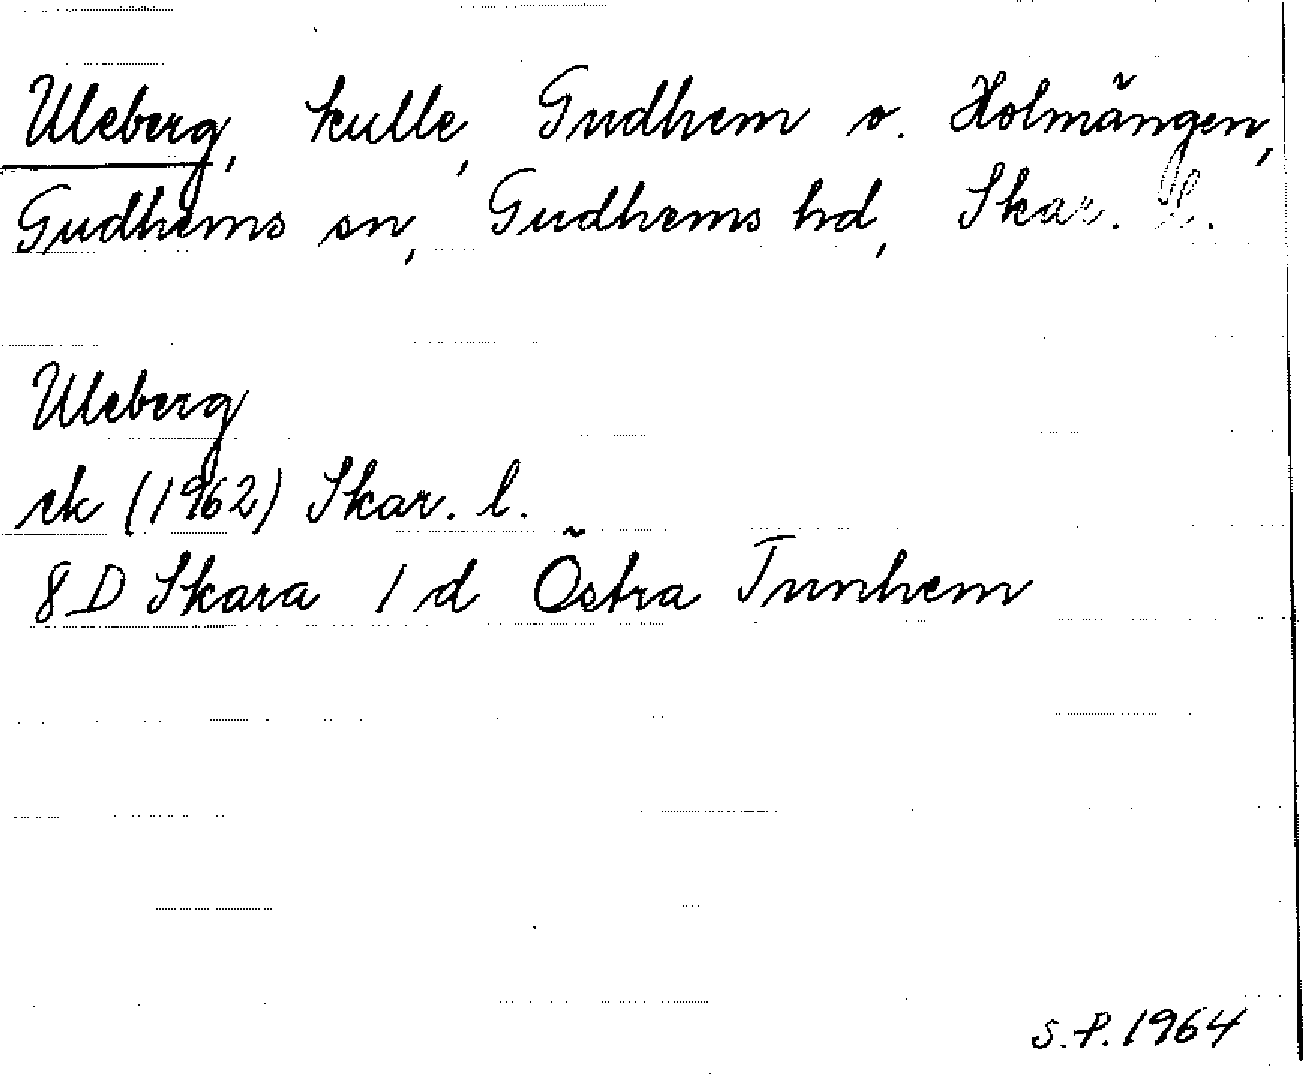 Uleberg, kulle, Gudhem o. Holmängen,
Gudhems sn, Gudhems hd, Skar. l.
Uleberg
ek (1962) Skar. l.
8 D Skara 1 d Östra Tunhem
S.P. 1964